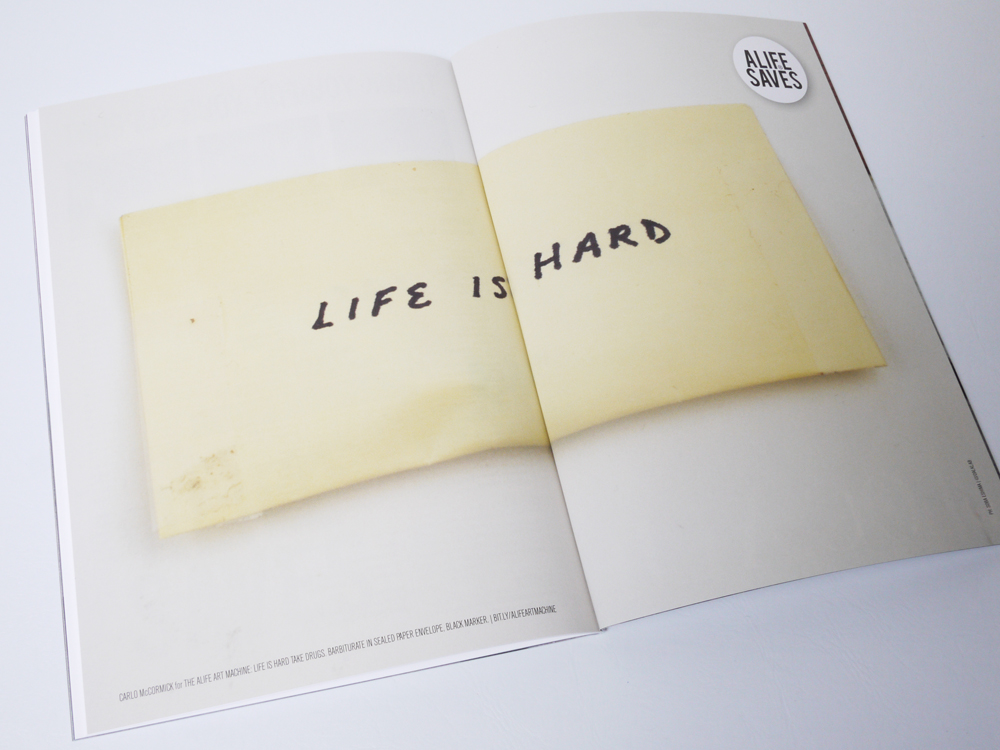 ALIFE
SAVES
LIFE IS HARD
CARLO McCORMICK for THE ALIFE ART MACHINE. LIFE IS HARD TAKE DRUGS. BARBITURATE IN SEALED PAPER ENVELOPE. BLACK MARKER. | BIT.LY/ALIFEARTMACHINE